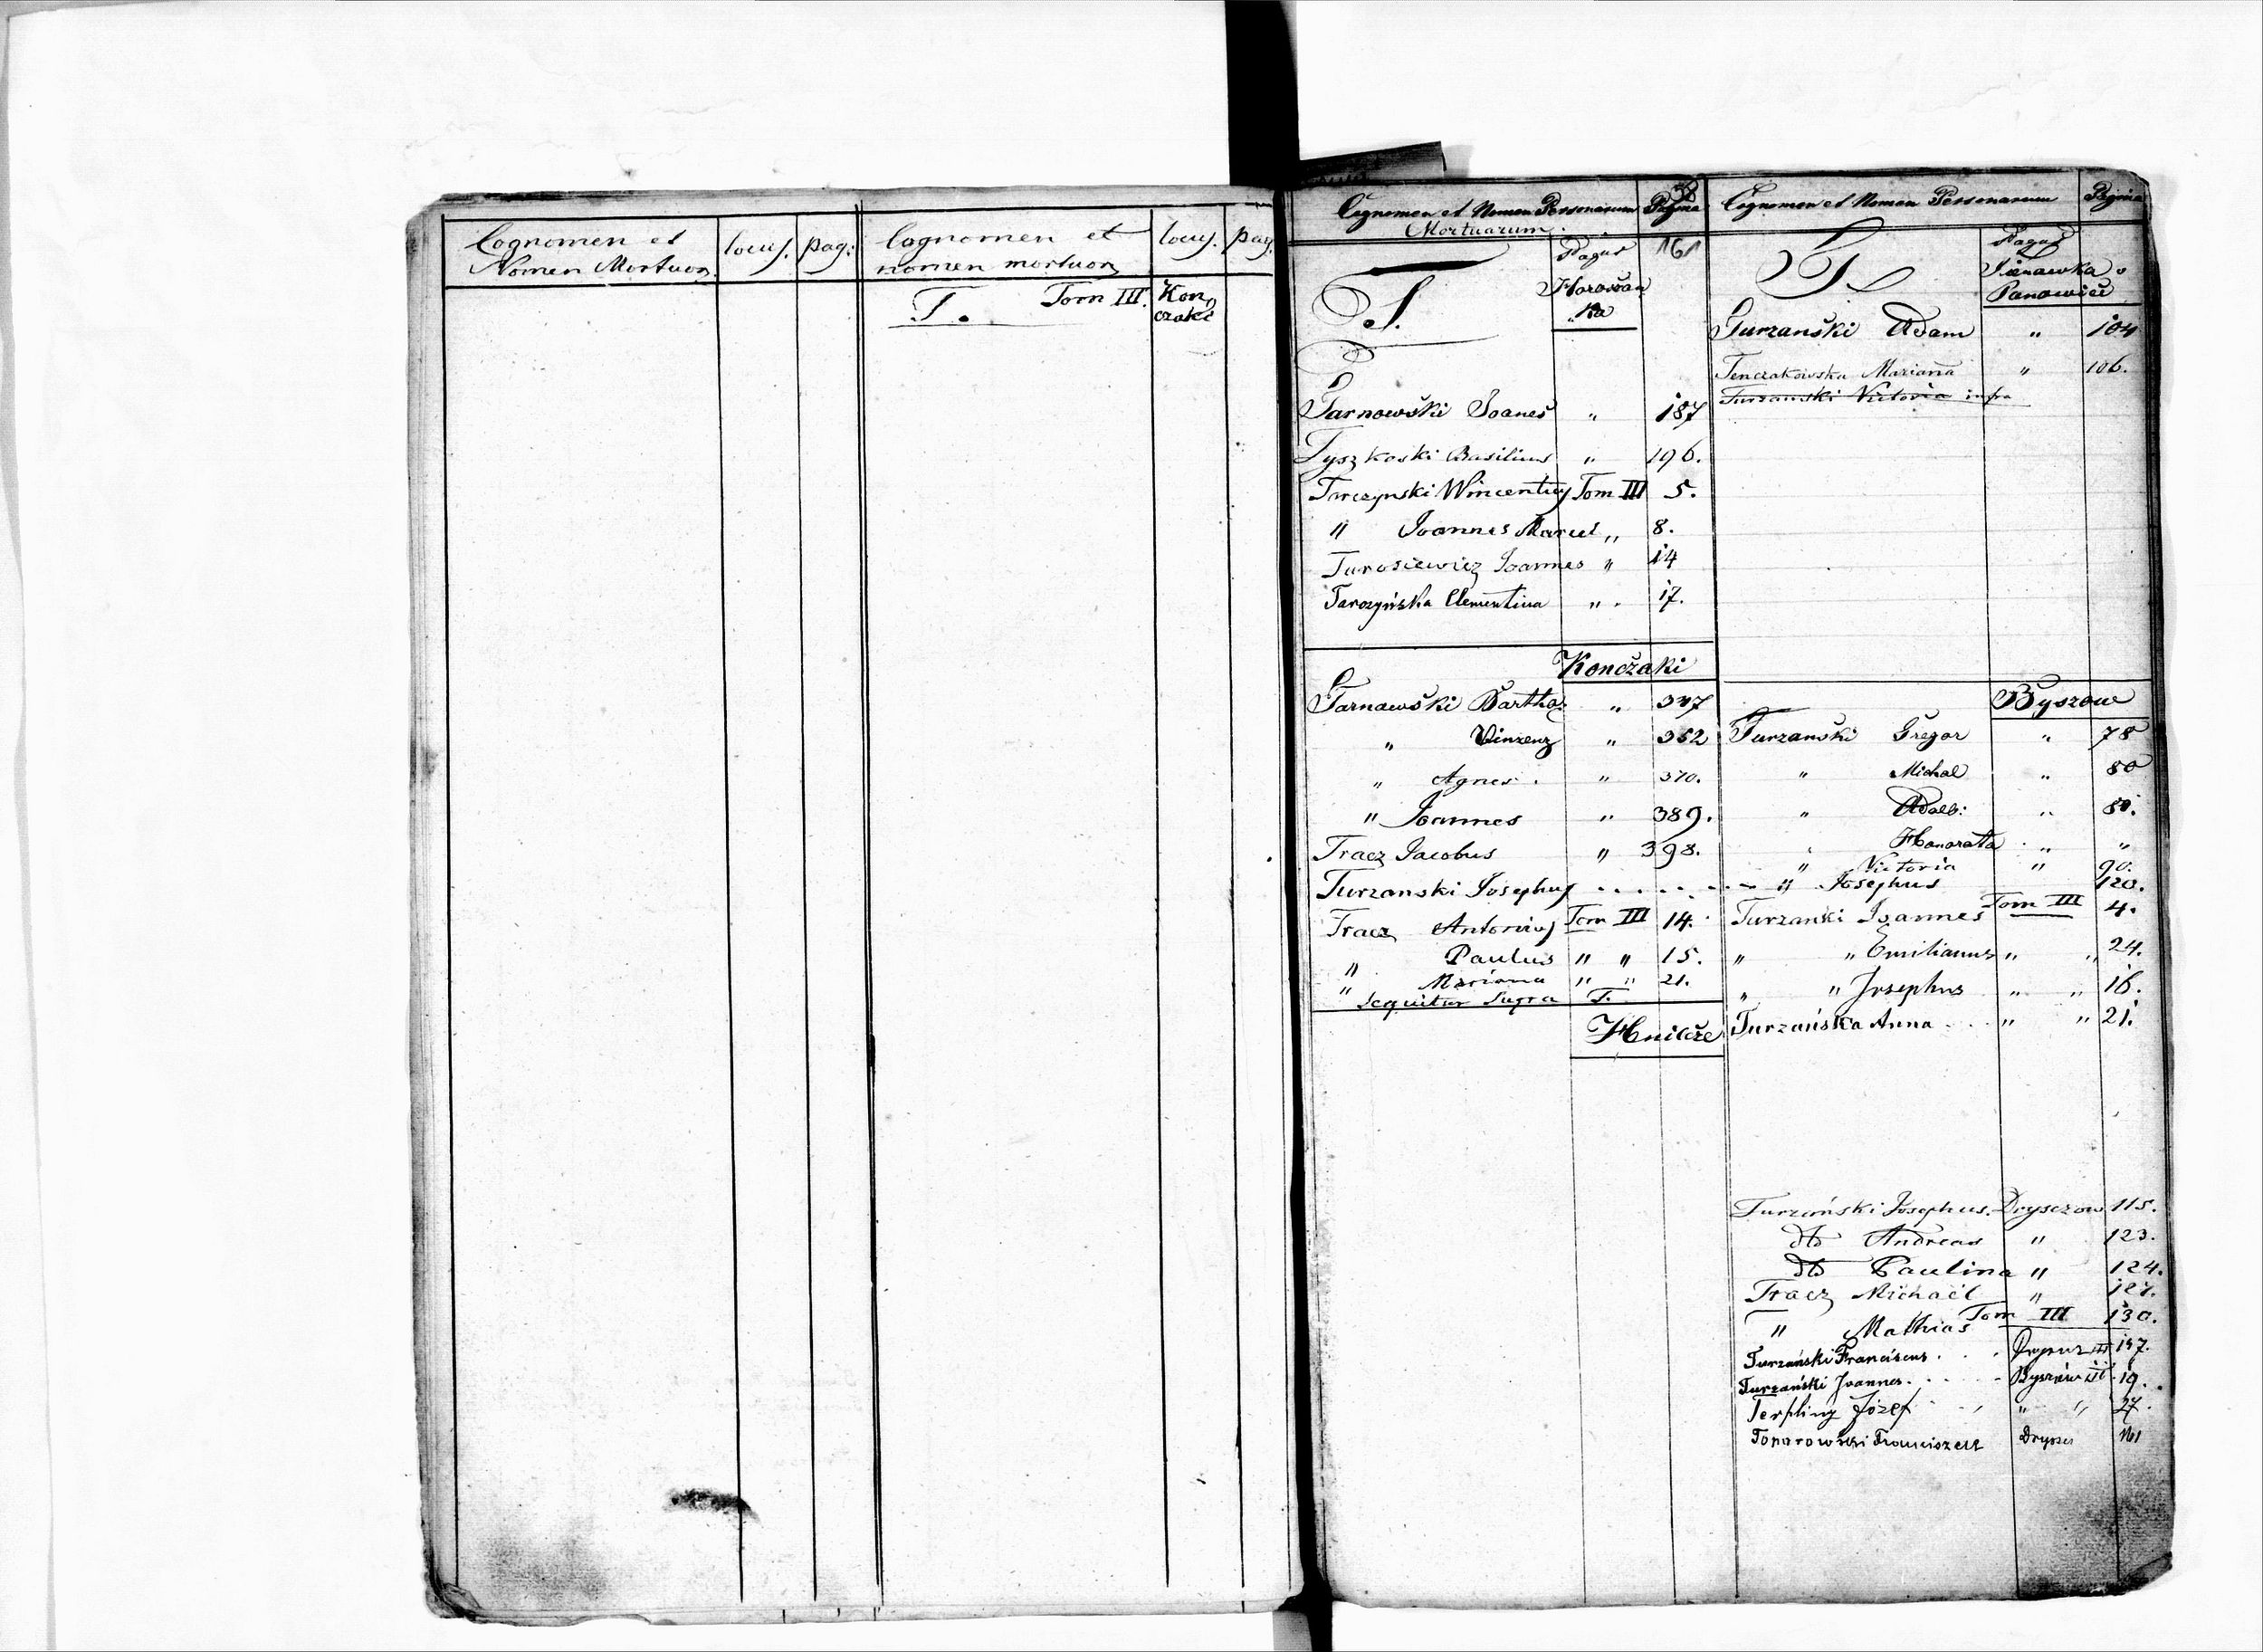 Cognomen et Nomen Mortuor. locus. pag: Cognomen et nomen mortuor. locus. pag.
T. Tom III. Kon
czaki
58
Cognomen et Nomen Personarum Pagina
Mortuarum.
Pagus 161
Horożan
ka
T.
Tarnowški Joaneš " 187
Tyszkoski Basilius " 196.
Twczynski Wincentry Tom III 5.
" Joannes Marcel " 8.
Turosiewicz Joannes " 14
Tarczyńska Clementina " . 17.
Končzaki
Tarnawški Barthoz " 347
" Vinzenz " 362
" Agnes . " 370.
" Joannes " 389.
Tracz Jacobus " 398.
Turzanski Josephus
Tracz Antonius Tom III 14.
" Paulus " " 15.
" Mariana " " 21.
Sequitur Supra T.
Hnilcže
Cognomen et Nomen Personarum Pagina
T
Pagus
Panowice
Turzanški Adam " 104
Tenczakowska Mariana " 106.
Turzanski Victoria infra
Byszow
Turzanški Gregor " 78
" Michal " 80
" Adalb: " 80.
" Honorata " "
" Victoria " 90.
" Josephus 120.
Turzanki Joannes Tom III 4.
" " Emilianus " " 24.
" " Josephus " " 18.
Turzańska Anna " " 21.
Turzański Josephus. Dryszczow 115.
dto Andreas " 123.
dto Paulina " 124.
Tracz Michaël " 127.
" Mathias Tom III 130.
Turzański Franciscus . . . III 147.
Turzański Joannes. Byszów III 19.
Terpliny Józef " " 27.
Tonarowski Franciszek Drysz 161